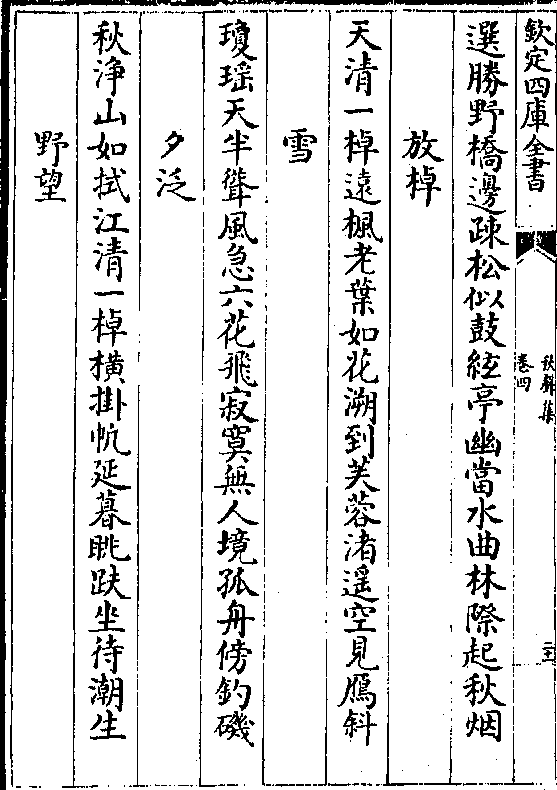 欽定四庫全書
卷四
選勝野橋邊疎松似鼓絃亭幽當水曲林際起秋烟
放棹
天清一棹遠楓老葉如花溯到芙蓉渚遥空見鴈斜
雪
瓊瑶天半聳風急六花飛寂寞無人境孤舟傍釣磯
夕泛
秋净山如拭江清一棹横掛帆延暮眺趺坐待潮生
野望